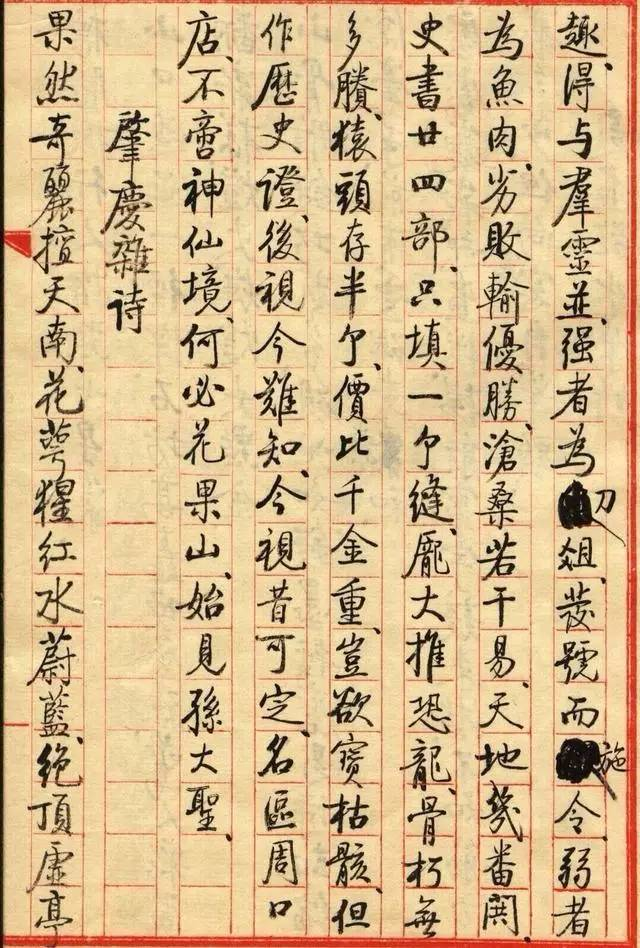 趣、得与羣靈並、强者為刀俎、發號而施令、弱者
為魚肉、劣敗輸優勝、滄桑若干易、天地幾番閧、
史書廿四部、只填一个縫、龐大推恐龍、骨朽無
多賸、猿頭存半个、價比千金重、豈欲寶枯骸、但
作歷史證、後視今難知、今視昔可定、名區周口
店、不啻神仙境、何必花果山、始見孫大聖、
肇慶雜诗
果然奇麗擅天南、花萼猩红水蔚藍、绝頂虚亭